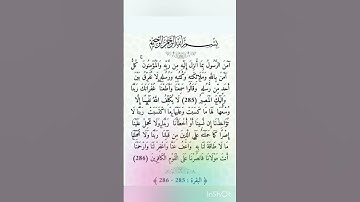 بسم الله الرحمن الرحيم
آمَنَ الرَّسُولُ بِمَا أُنزِلَ إِلَيْهِ مِن رَّبِّهِ وَالْمُؤْمِنُونَ ۚ كُلٌّ
آمَنَ بِاللَّهِ وَمَلَائِكَتِهِ وَكُتُبِهِ وَرُسُلِهِ لَا نُفَرِّقُ بَيْنَ
أَحَدٍ مِّن رُّسُلِهِ ۚ وَقَالُوا سَمِعْنَا وَأَطَعْنَا ۖ غُفْرَانَكَ رَبَّنَا
وَإِلَيْكَ الْمَصِيرُ (285) لَا يُكَلِّفُ اللَّهُ نَفْسًا إِلَّا
وُسْعَهَا ۚ لَهَا مَا كَسَبَتْ وَعَلَيْهَا مَا اكْتَسَبَتْ ۗ رَبَّنَا لَا
تُؤَاخِذْنَا إِن نَّسِينَا أَوْ أَخْطَأْنَا ۚ رَبَّنَا وَلَا تَحْمِلْ عَلَيْنَا
إِصْرًا كَمَا حَمَلْتَهُ عَلَى الَّذِينَ مِن قَبْلِنَا ۚ رَبَّنَا وَلَا تُحَمِّلْنَا
مَا لَا طَاقَةَ لَنَا بِهِ ۖ وَاعْفُ عَنَّا وَاغْفِرْ لَنَا وَارْحَمْنَا ۚ
أَنتَ مَوْلَانَا فَانصُرْنَا عَلَى الْقَوْمِ الْكَافِرِينَ (286)
﴿ البقرة : 285 - 286 ﴾